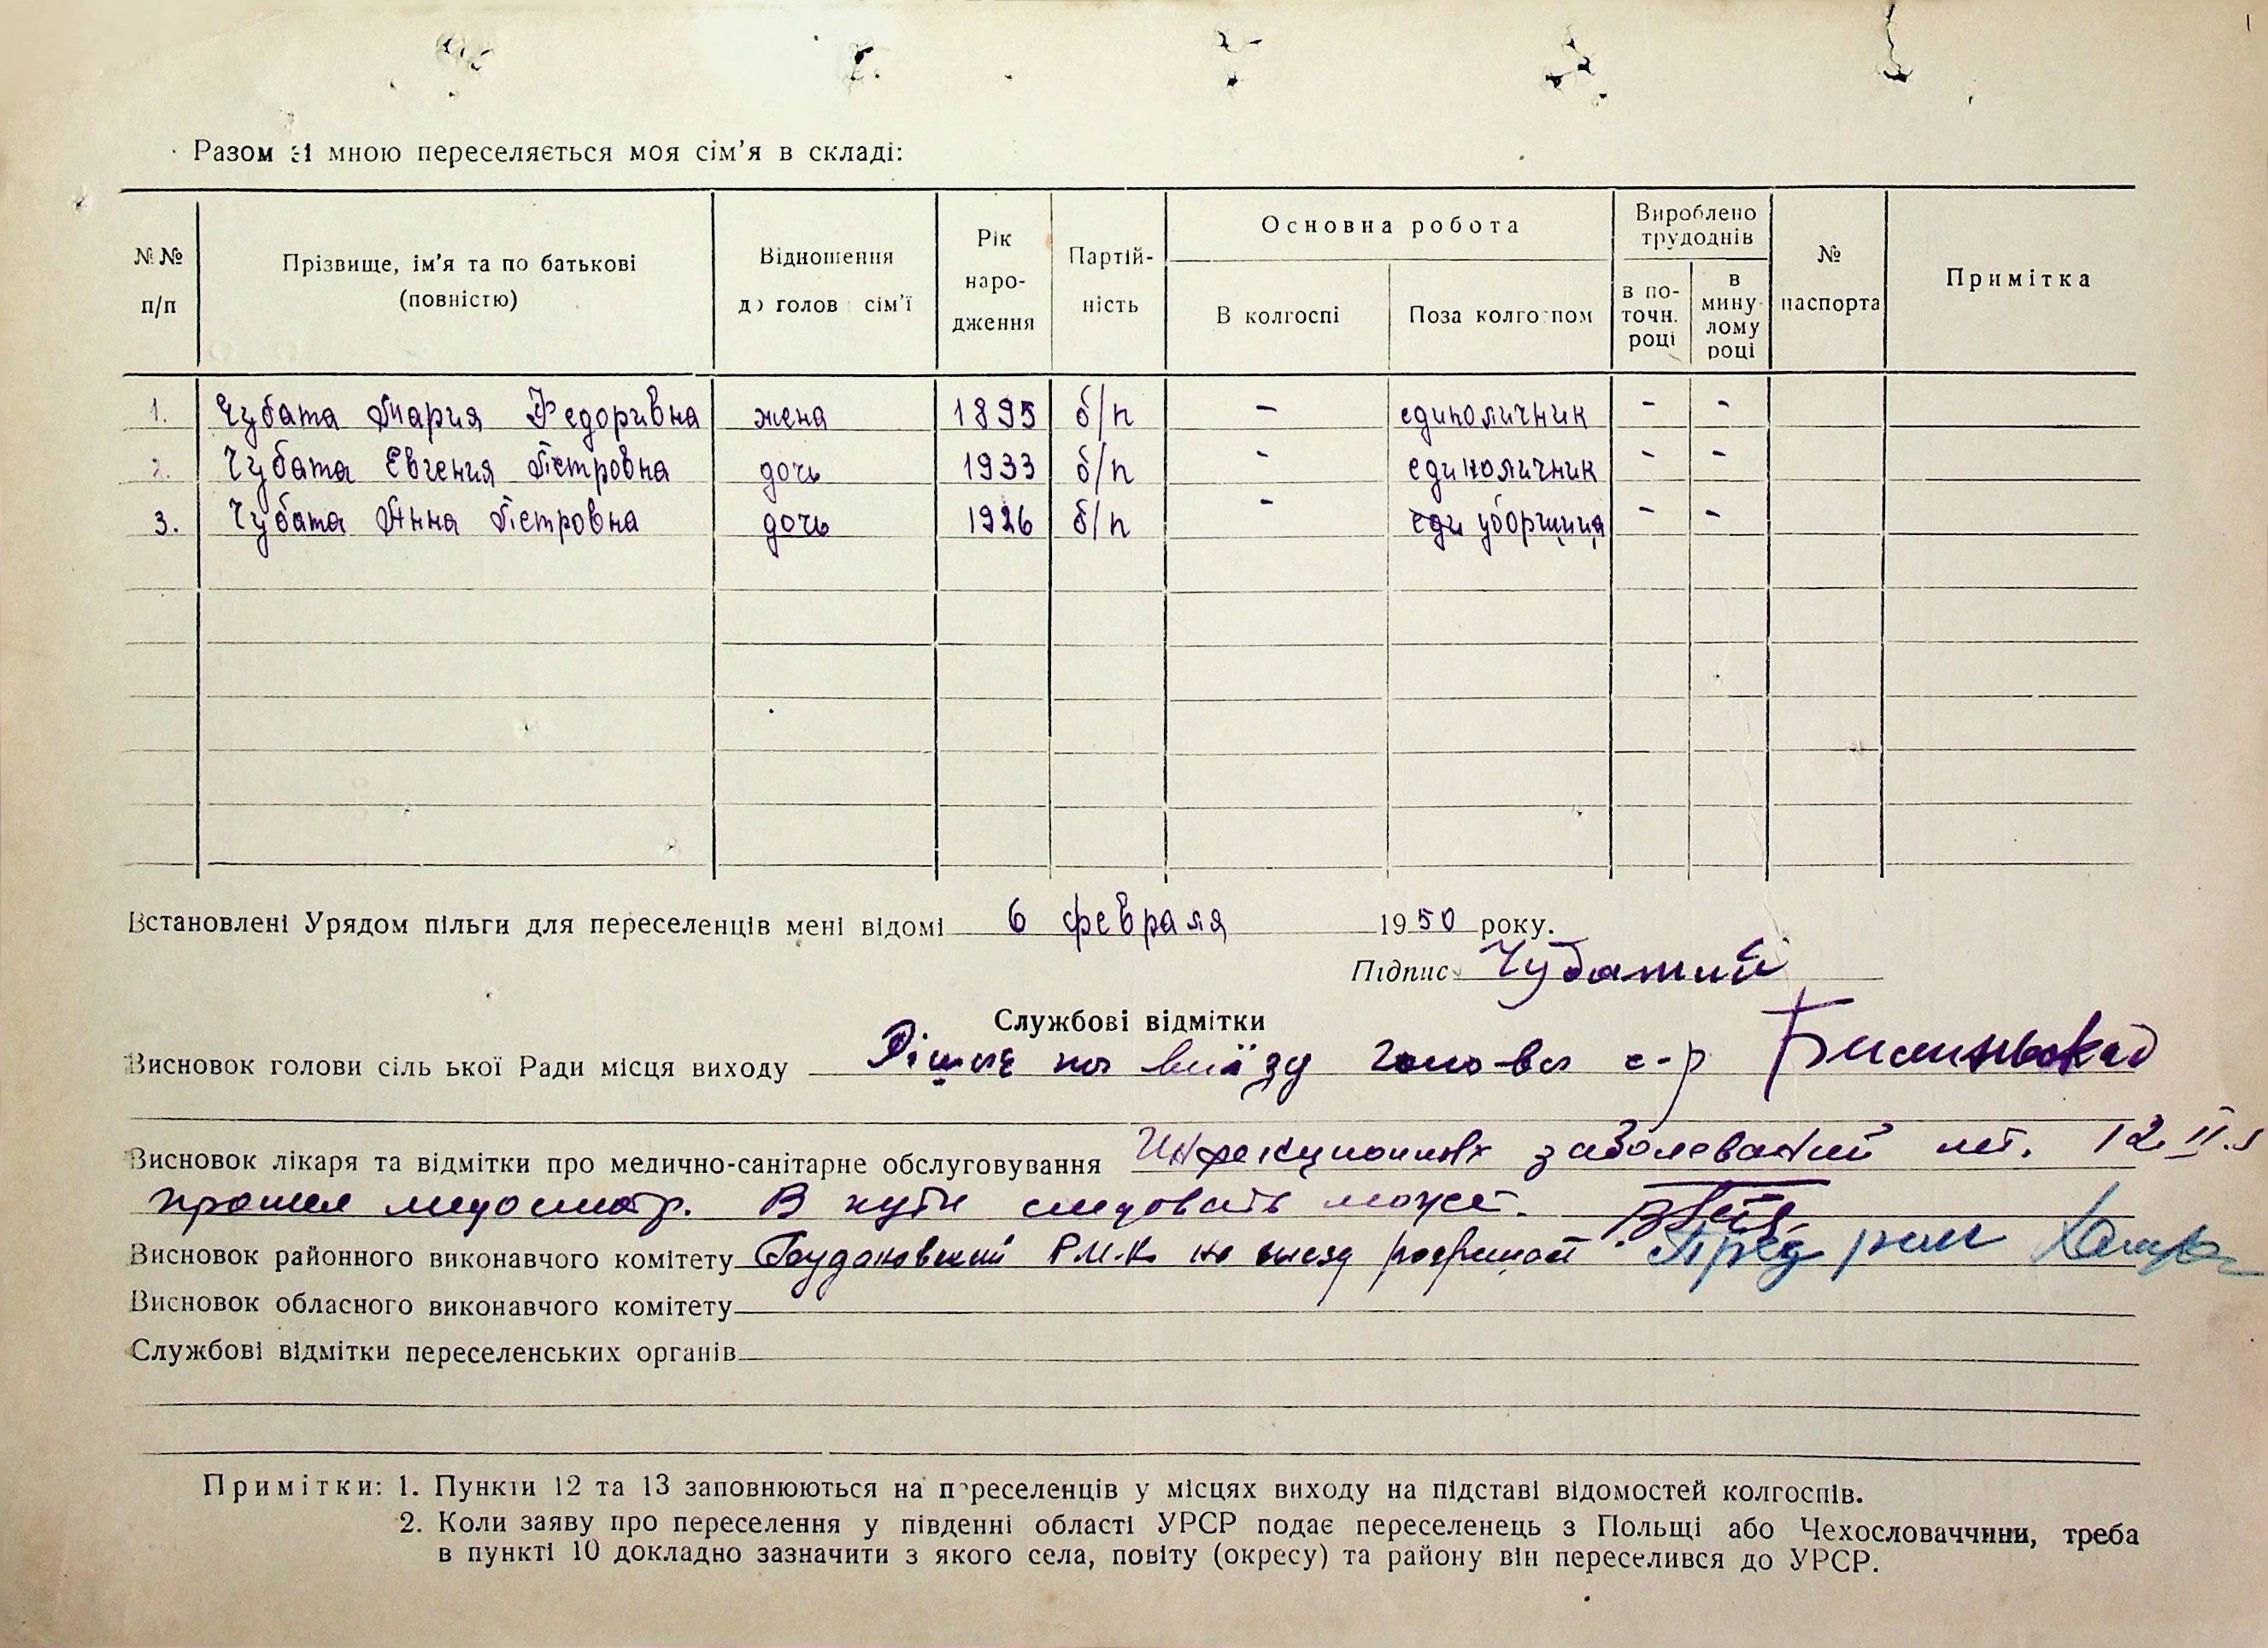 Разом зі мною переселяється моя сім'я в складі:
№№ п/п
Прізвище, ім'я та по батькові (повністю)
Відношення до голов сім'ї
Рік народження
Партійність
Основна робота
В колгоспі
Поза колгоспом
Вироблено трудоднів
в поточн. році
в минулому році
№ паспорта
Примітка
1. Чубата Мария Федоривна жена 1895 б/п - единоличник - -
2. Чубата Евгения Петровна дочь 1933 б/п - единоличник - -
3. Чубата Анна Петровна дочь 1926 б/п - еди уборщиця - -
Встановлені Урядом пільги для переселенців мені відомі 6 февраля 1950 року.
Підпис Чубатий
Службові відмітки
Висновок голови сіль ької Ради місця виходу на виїзду голова с-р
Висновок лікаря та відмітки про медично-санітарне обслуговування Инфекционных заболеваний нет. 12.II.
прошел медосмотр. В пути следовать может.
Висновок районного виконавчого комітету Будановский на выезд Пред рик
Висновок обласного виконавчого комітету
Службові відмітки переселенських органів
Примітки: 1. Пункти 12 та 13 заповнюються на переселенців у місцях виходу на підставі відомостей колгоспів.
2. Коли заяву про переселення у південні області УРСР подає переселенець з Польщі або Чехословаччини, треба
в пункті 10 докладно зазначити з якого села, повіту (окресу) та району він переселився до УРСР.